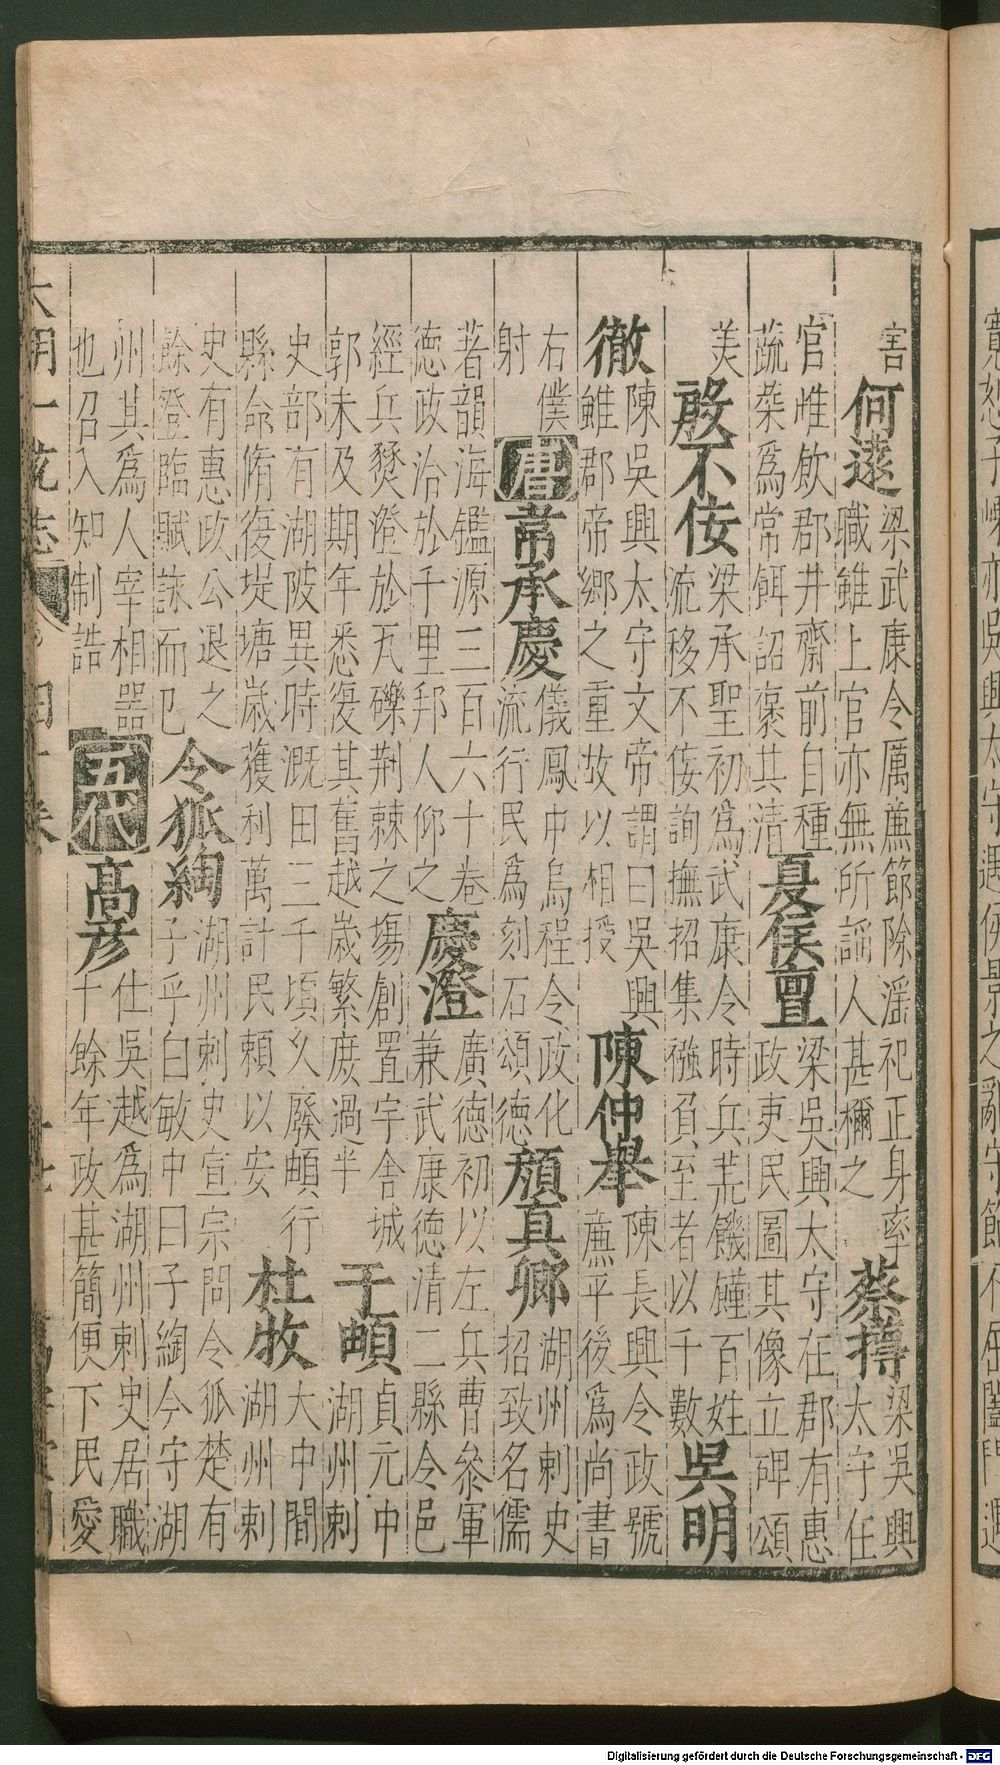 害
何遠
梁武康令厲廉節除滛祀正身率
職雖上官亦無所謟人甚稱之
蔡撙
梁吳興
太守任
官唯飲郡井齋前自種
蔬菜爲常餌詔褒其清
夏侯亶
梁吳興太守在郡有惠
政吏民圖其像立碑頌
美
不佞
梁承聖初爲武康令時兵荒饑百姓
流移不佞詢撫招集襁負至者以千數
吳明
徹
陳吳興太守文帝謂曰吳興
雖郡帝鄉之重故以相授
陳仲舉
陳長興令政號
廉平後爲尚書
右僕
射
唐
韋承慶
儀鳳中烏程令政化
流行民爲刻石頌德
顔真卿
湖州刺史
招致名儒
著韻海鑑源三百六十卷
德政洽於千里邦人仰之
慶澄
廣德初以左兵曹叅軍
兼武康德清二縣令邑
經兵燹澄於瓦礫荆棘之場創置宇舍城
郭未及期年悉復其舊越歲繁庶過半
于頔
貞元中
湖州刺
史部有湖陂異時溉田三千頃乆廢頔行
縣命脩復堤塘歲獲利萬計民賴以安
杜牧
大中間
湖州刺
史有惠政公退之
餘登臨賦詠而已
令狐綯
湖州刺史宣宗問令狐楚有
子乎白敏中曰子綯今守湖
州其爲人宰相器
也召入知制誥
五代
高彦
仕吳越爲湖州刺史居職
十餘年政甚簡便下民愛
大明一統志
Digitalisierung gefördert durch die Deutsche Forschungsgemeinschaft - DFG